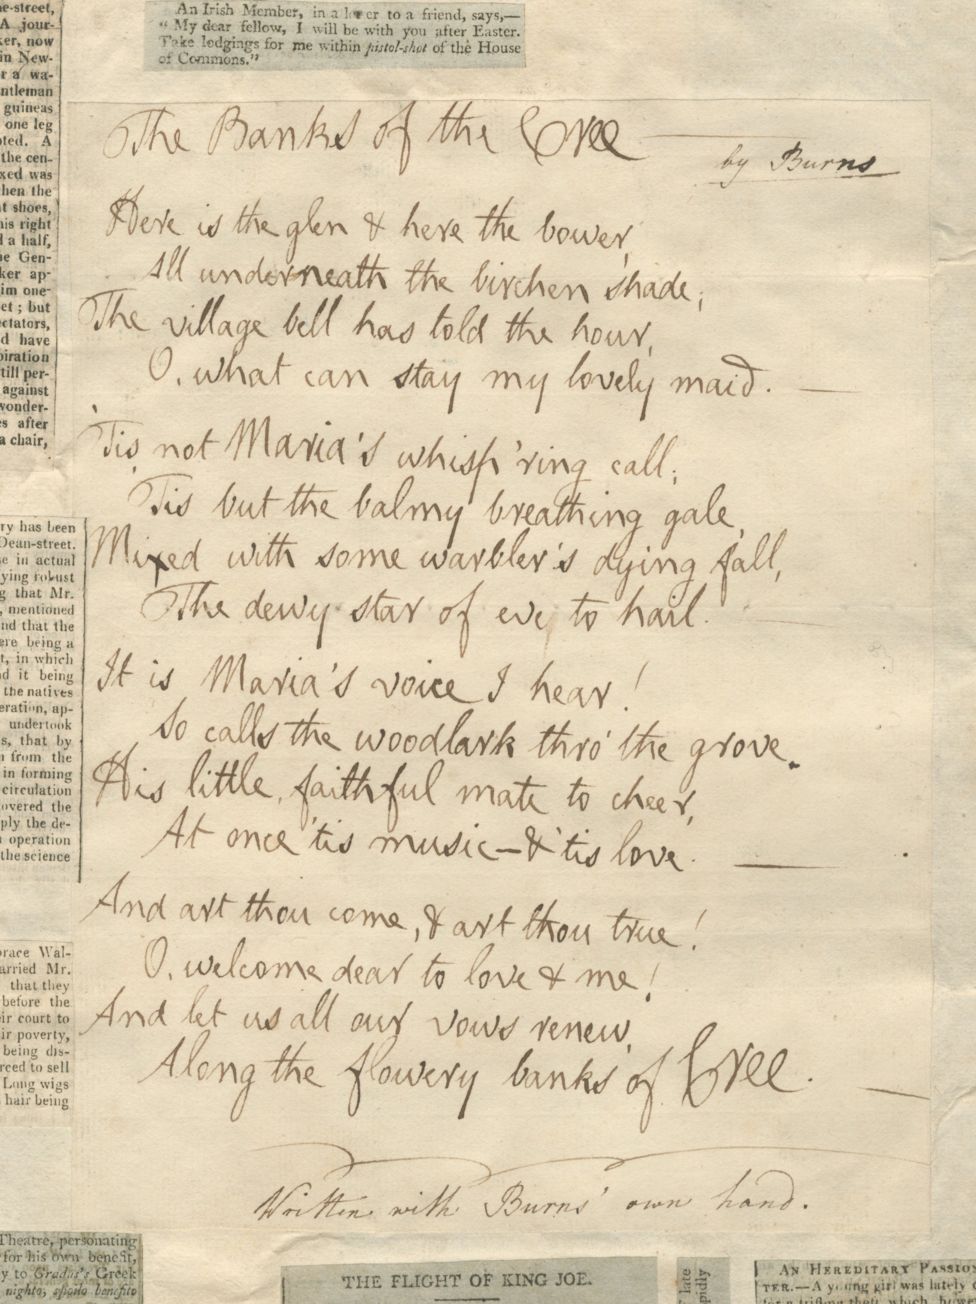 An Irish Member, in a letter to a friend, says,—
" My dear fellow, I will be with you after Easter.
Take lodgings for me within pistol-shot of the House
of Commons."
The Banks of the Cree
by Burns
Here is the glen & here the bower,
All underneath the birchen shade;
The village bell has told the hour,
O, what can stay my lovely maid. —
'Tis not Maria's whisp'ring call;
'Tis but the balmy breathing gale,
Mixed with some warbler's dying fall,
The dewy star of eve to hail.
It is Maria's voice I hear!
So calls the woodlark thro' the grove.
His little, faithful mate to cheer,
At once 'tis music — & 'tis love. —
And art thou come, & art thou true!
O, welcome dear to love & me!
And let us all our vows renew,
Along the flowery banks of Cree. —
Written with Burns' own hand.
ne-street,
A jour-
ker, now
in New-
r a wa-
ntleman
guineas
one leg
oted. A
the cen-
xed was
hen the
t shoes,
his right
d a half,
e Gen-
ker ap-
im one-
et ; but
ectators,
d have
piration
till per-
against
wonder-
es after
a chair,
ry has been
Dean-street.
e in actual
ying robust
g that Mr.
, mentioned
nd that the
ere being a
t, in which
d it being
the natives
eration, ap-
undertook
s, that by
n from the
in forming
circulation
overed the
ply the de-
operation
the science
orace Wal-
arried Mr.
that they
before the
eir court to
ir poverty,
being dis-
rced to sell
Long wigs
hair being
Theatre, personating
for his own benefit,
y to Gradus's Greek
nights, efpado benefito
THE FLIGHT OF KING JOE.
late
pidly
AN HEREDITARY PASSIO
TER.—A young girl was lately
for a trifling theft, which, howe